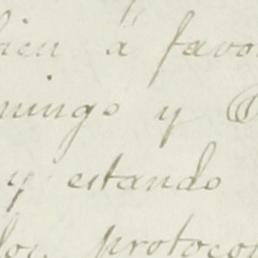 bien á favo
mingo y
y estando
los protoco